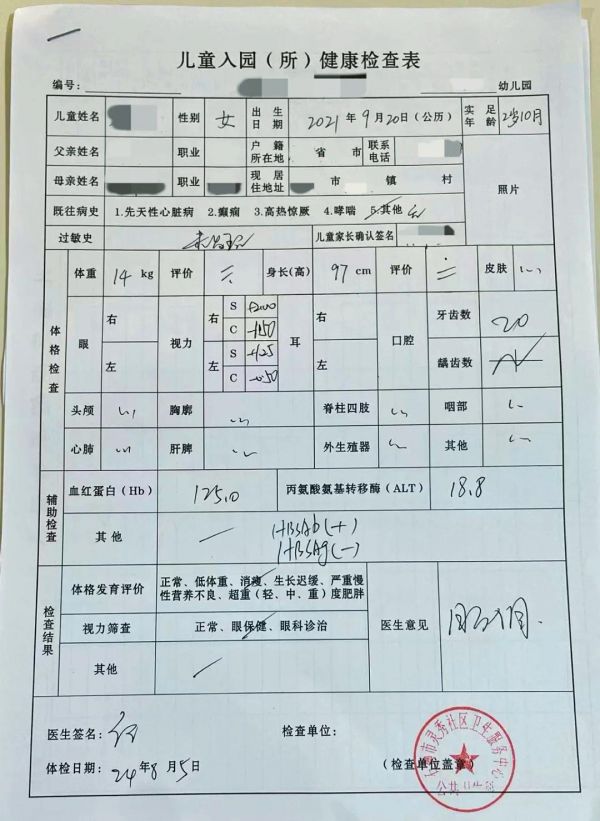 儿童入园（所）健康检查表
编号： 幼儿园
儿童姓名 性别 女 出生日期 2021年9月20日（公历） 实足年龄 2岁10月
父亲姓名 职业 户籍所在地 省 市 联系电话
母亲姓名 职业 现居住地址 市 镇 村 照片
既往病史 1.先天性心脏病 2.癫痫 3.高热惊厥 4.哮喘 5.其他
过敏史 儿童家长确认签名
体格检查
体重 14 kg 评价 身长(高) 97 cm 评价 皮肤
眼 右 左 视力 右 S +2.00 耳 右 左 口腔 牙齿数 20
C
左 S +1.25 龋齿数
C -0.50
头颅 胸廓 脊柱四肢 咽部
心肺 肝脾 外生殖器 其他
辅助检查
血红蛋白（Hb） 125.0 丙氨酸氨基转移酶（ALT） 18.8
其他 HBSAb(+)
HBSAg(-)
检查结果
体格发育评价 正常、低体重、消瘦、生长迟缓、严重慢
性营养不良、超重（轻、中、重）度肥胖
视力筛查 正常、眼保健、眼科诊治 医生意见 同意入园
其他
医生签名： 检查单位：
体检日期： 24年8月5日 （检查单位盖章）
市灵秀社区卫生服务中心
公共卫生